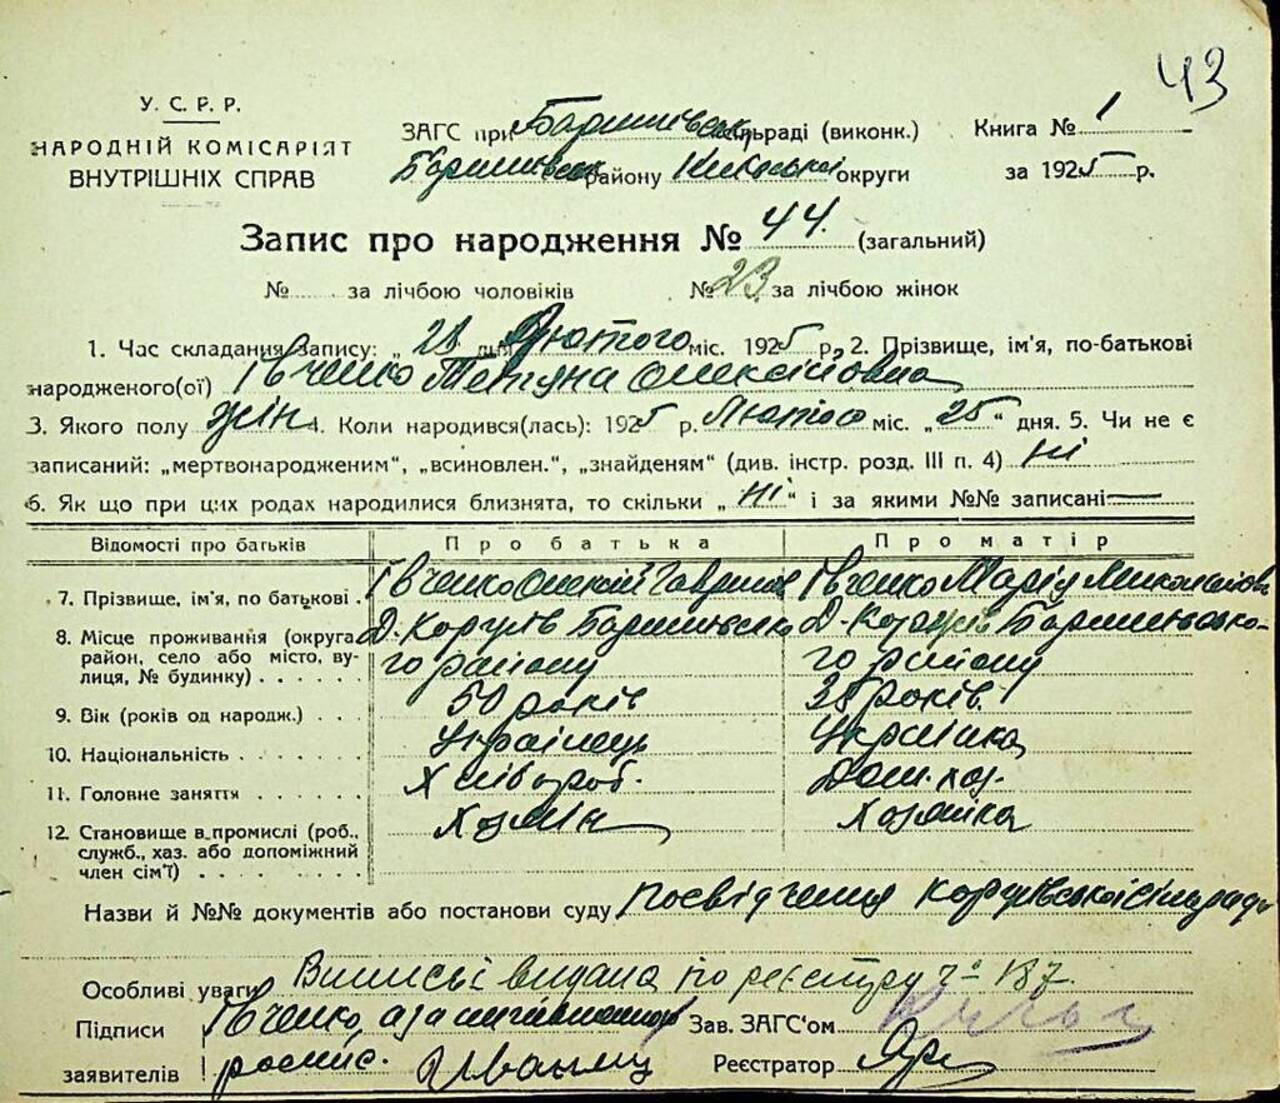 43
У. С. Р. Р.
НАРОДНІЙ КОМІСАРІЯТ
ВНУТРІШНІХ СПРАВ
ЗАГС при Баришівськ. сільраді (виконк.)
Баришівськ району Київської округи
Книга № 1
за 1925 р.
Запис про народження № 44. (загальний)
№ ...... за лічбою чоловіків № 23 за лічбою жінок
1. Час складання запису: „ 28 дня Лютого міс. 1925 р. 2. Прізвище, ім'я, по-батькові
народженого(ої) Івченко Тетяна Олексіївна
3. Якого полу жін 4. Коли народився(лась): 1925 р. Лютого міс. „ 25 “ дня. 5. Чи не є
записаний: „мертвонародженим“, „всиновлен.“, „знайденям“ (див. інстр. розд. III п. 4) Ні
6. Як що при цих родах народилися близнята, то скільки „ Ні “ і за якими №№ записані —
Відомості про батьків Про батька Про матір
7. Прізвище, ім'я, по батькові . Івченко Олексій Івченко Марія Миколаївна
8. Місце проживання (округа район, село або місто, вулиця, № будинку) . . . . . . Д. Коржів Баришівсько го району Д. Коржів Баришівсько- го району
9. Вік (років од народж.) . . . 50 років 38 років.
10. Національність . . . . . . . Українець Українка
11. Головне заняття . . . . . . Хлібороб. Дом. хоз.
12. Становище в промислі (роб., служб., хаз. або допоміжний член сім'ї) . . . . . . . Хозяїн Хозяйка
Назви й №№ документів або постанови суду Посвідчення Коржівської сільради
Особливі уваги Випись видана по реєстру № 187.
Підписи Івченко, а за неписьменного Зав. ЗАГС'ом
заявителів роспис. Реєстратор